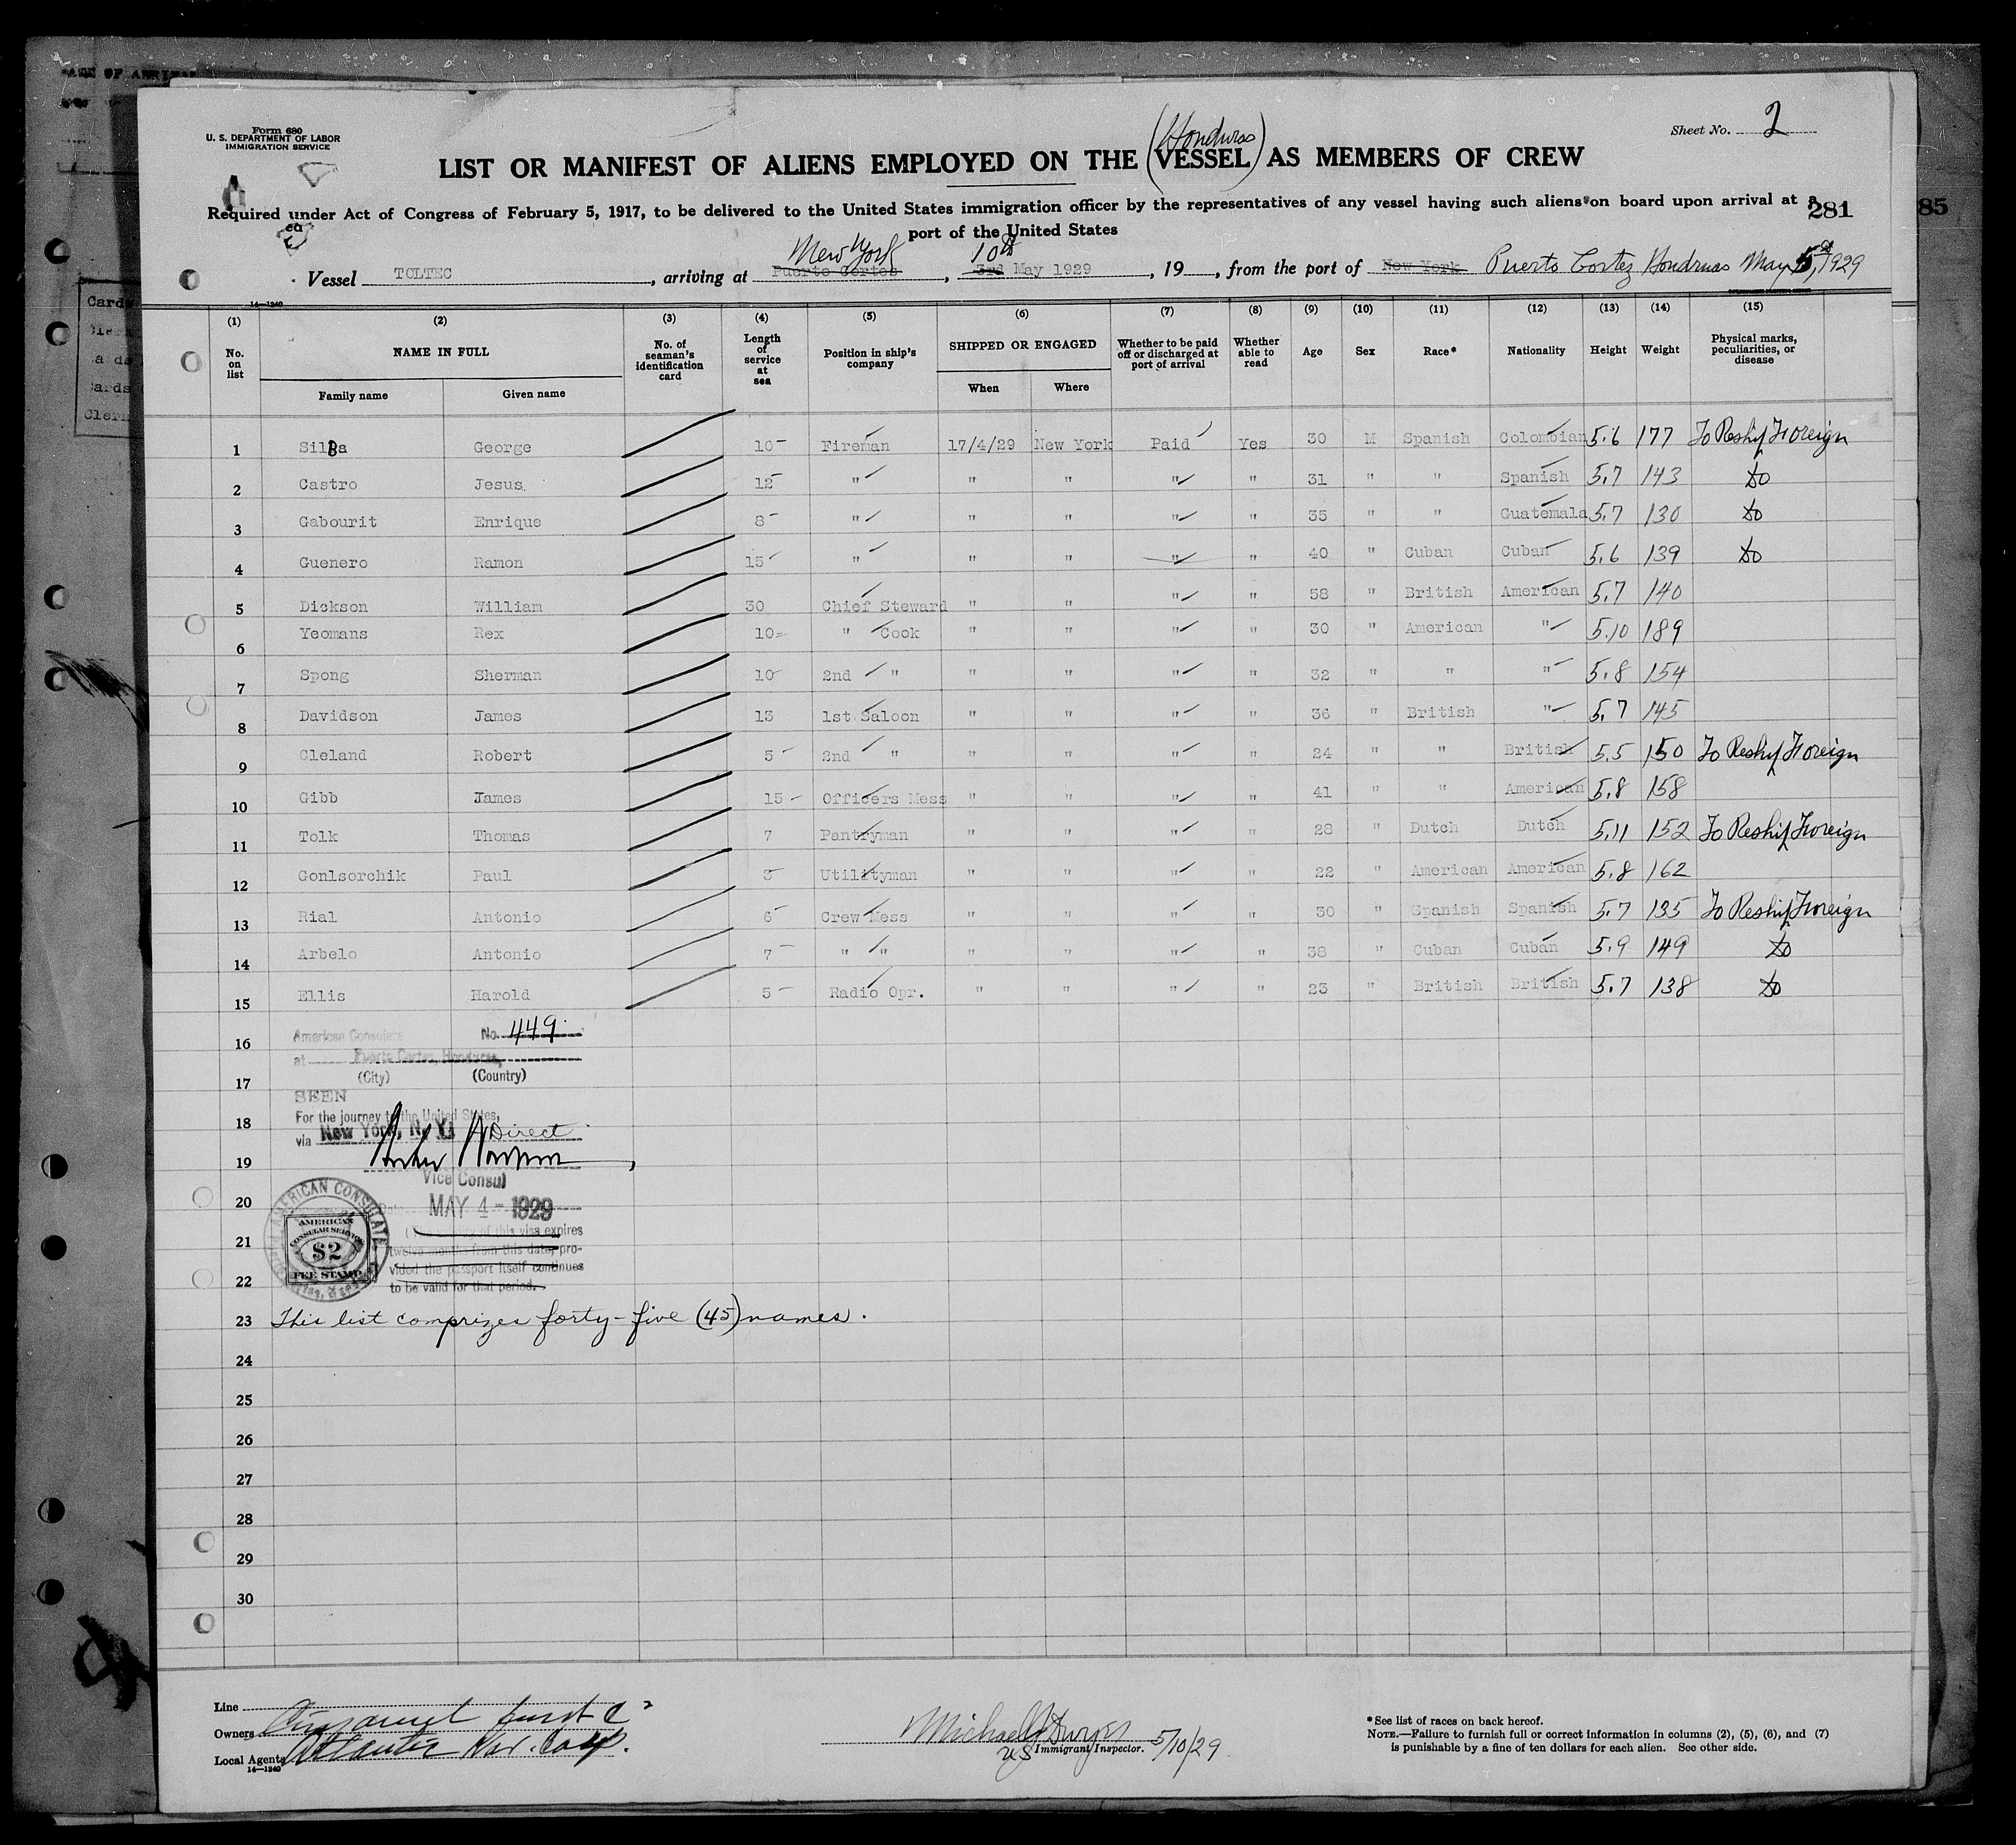 Form 680
U. S. DEPARTMENT OF LABOR
IMMIGRATION SERVICE
Sheet No. 2
(Honduras)
LIST OR MANIFEST OF ALIENS EMPLOYED ON THE VESSEL AS MEMBERS OF CREW
Required under Act of Congress of February 5, 1917, to be delivered to the United States immigration officer by the representatives of any vessel having such aliens on board upon arrival at a
port of the United States
281
85
New York 10th
Vessel TOLTEC, arriving at Puerto Cortes, 3rd May 1929, 19, from the port of New York Puerto Cortez Honduras May 5, 1929
14—1240
(1) (2) (3) (4) (5) (6) (7) (8) (9) (10) (11) (12) (13) (14) (15)
No. on list NAME IN FULL No. of seaman's identification card Length of service at sea Position in ship's company SHIPPED OR ENGAGED Whether to be paid off or discharged at port of arrival Whether able to read Age Sex Race* Nationality Height Weight Physical marks, peculiarities, or disease
Family name Given name When Where
1 Silva George 10 Fireman 17/4/29 New York Paid Yes 30 M Spanish Colombian 5.6 177 To Reship Foreign
2 Castro Jesus 12 " " " " " 31 " " Spanish 5.7 143 do
3 Gabourit Enrique 8 " " " " " 35 " " Guatemala 5.7 130 do
4 Guenero Ramon 15 " " " " " 40 " Cuban Cuban 5.6 139 do
5 Dickson William 30 Chief Steward " " " " 58 " British American 5.7 140
6 Yeomans Rex 10 " Cook " " " " 30 " American " 5.10 189
7 Spong Sherman 10 2nd " " " " " 32 " " " 5.8 154
8 Davidson James 13 1st Saloon " " " " 36 " British " 5.7 145
9 Cleland Robert 5 2nd " " " " " 24 " " British 5.5 150 To Reship Foreign
10 Gibb James 15 Officers Mess " " " " 41 " " American 5.8 158
11 Tolk Thomas 7 Pantryman " " " " 28 " Dutch Dutch 5.11 152 To Reship Foreign
12 Gonlsorchik Paul 3 Utilityman " " " " 22 " American American 5.8 162
13 Rial Antonio 6 Crew Mess " " " " 30 " Spanish Spanish 5.7 135 To Reship Foreign
14 Arbelo Antonio 7 " " " " " " 38 " Cuban Cuban 5.9 149 do
15 Ellis Harold 5 Radio Opr. " " " " 23 " British British 5.7 138 do
16
American Consulate No. 449
at Puerto Cortes, Honduras
(City) (Country)
17
SEEN
For the journey to the United States,
18
via New York, N.Y. Direct
19
Vice Consul
20
MAY 4 - 1929
21
of this visa expires
twelve months from this date, pro-
vided the passport itself continues
22
to be valid for that period.
AMERICAN CONSULATE
AMERICAN
CONSULAR SERVICE
$2
FEE STAMP
23 This list comprizes forty-five (45) names.
24
25
26
27
28
29
30
Line
Owners
Local Agents Atlantic Nav. Corp.
14—1240
US Immigrant Inspector. 5/10/29
* See list of races on back hereof.
NOTE.—Failure to furnish full or correct information in columns (2), (5), (6), and (7)
is punishable by a fine of ten dollars for each alien. See other side.